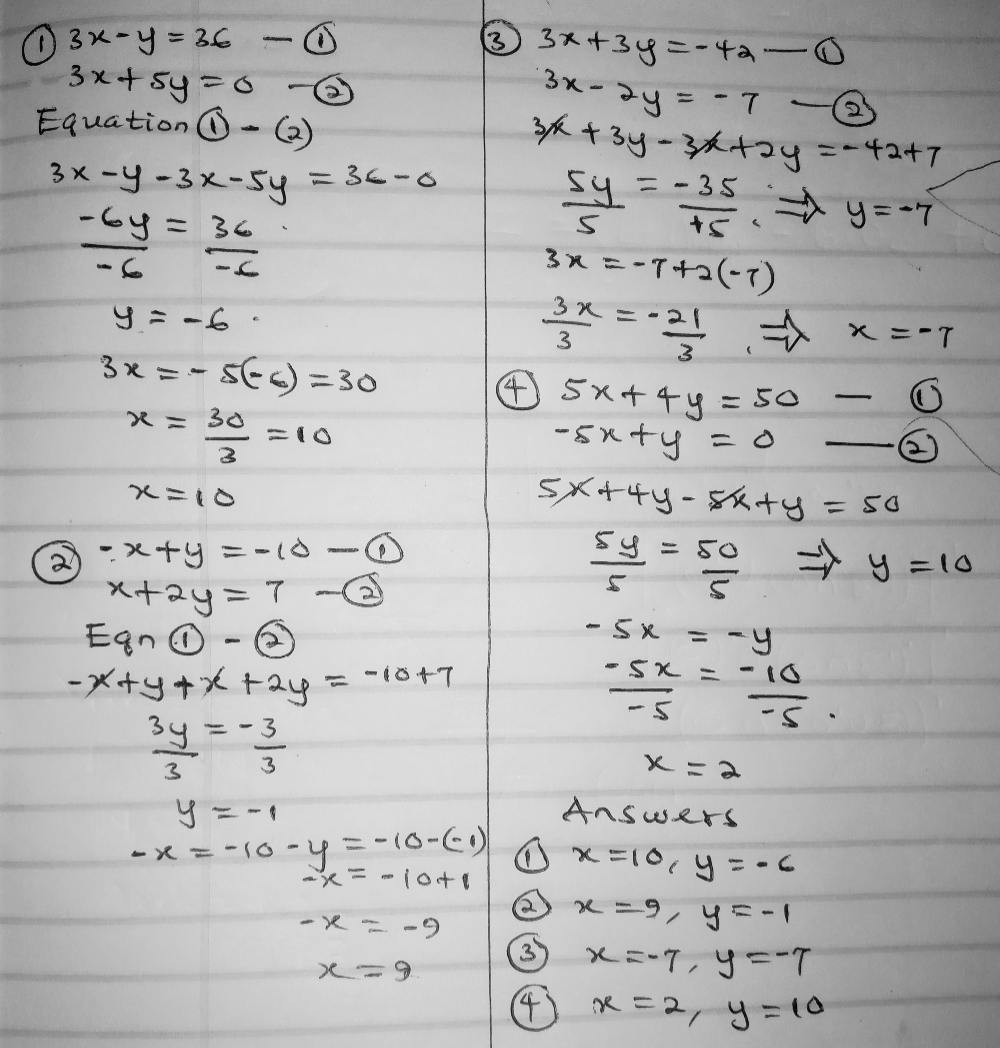 ① 3x-y=36 - ①
3x+5y=0 - ②
Equation ① - (2)
3x-y-3x-5y = 36-0
-6y/-6 = 36/-6
y = -6
3x = -5(-6) = 30
x = 30/3 = 10
x = 10
② -x+y = -10 - ①
x+2y = 7 - ②
Eqn ① - ②
-x+y+x+2y = -10+7
3y/3 = -3/3
y = -1
-x = -10-y = -10-(-1)
-x = -10+1
-x = -9
x = 9
③ 3x+3y = -42 — ①
3x-2y = -7 — ②
3x+3y-3x+2y = -42+7
5y/5 = -35/+5 ⇒ y = -7
3x = -7+2(-7)
3x/3 = -21/3 ⇒ x = -7
④ 5x+4y = 50 — ①
-5x+y = 0 — ②
5x+4y-5x+y = 50
5y/5 = 50/5 ⇒ y = 10
-5x = -y
-5x/-5 = -10/-5
x = 2
Answers
① x=10, y=-6
② x=9, y=-1
③ x=-7, y=-7
④ x=2, y=10